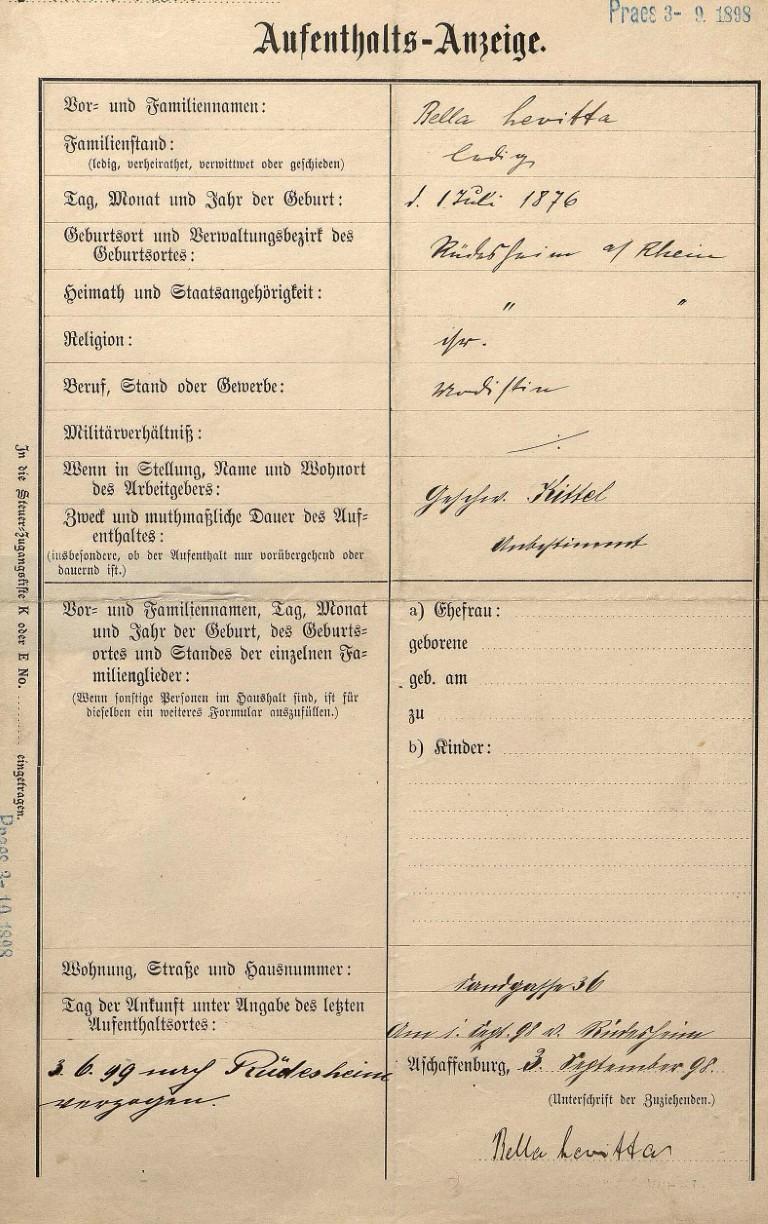 Praes 3- 9. 1898
Aufenthalts-Anzeige.
Vor- und Familiennamen:
Bella Levitta
Familienstand:
(ledig, verheirathet, verwittwet oder geschieden)
ledig
Tag, Monat und Jahr der Geburt:
d. 1 Juli 1876
Geburtsort und Verwaltungsbezirk des
Geburtsortes:
Rüdesheim a/ Rhein
Heimath und Staatsangehörigkeit:
" "
Religion:
isr.
Beruf, Stand oder Gewerbe:
Modistin
Militärverhältniß:
./.
Wenn in Stellung, Name und Wohnort
des Arbeitgebers:
Geschw. Kittel
Zweck und muthmaßliche Dauer des Auf-
enthaltes:
(insbesondere, ob der Aufenthalt nur vorübergehend oder
dauernd ist.)
Unbestimmt
Vor- und Familiennamen, Tag, Monat
und Jahr der Geburt, des Geburts-
ortes und Standes der einzelnen Fa-
milienglieder:
(Wenn sonstige Personen im Haushalt sind, ist für
dieselben ein weiteres Formular auszufüllen.)
a) Ehefrau:
geborene
geb. am
zu
b) Kinder:
Wohnung, Straße und Hausnummer:
Sandgasse 36
Tag der Ankunft unter Angabe des letzten
Aufenthaltsortes:
Am 1. Sept. 98 v. Rüdesheim
3. 6. 99 nach Rüdesheim
verzogen.
Aschaffenburg, 3. September 98.
(Unterschrift der Zuziehenden.)
Bella Levitta
In die Steuer-Zugangsliste K oder E No. eingetragen.
Praes 3- 10 1898